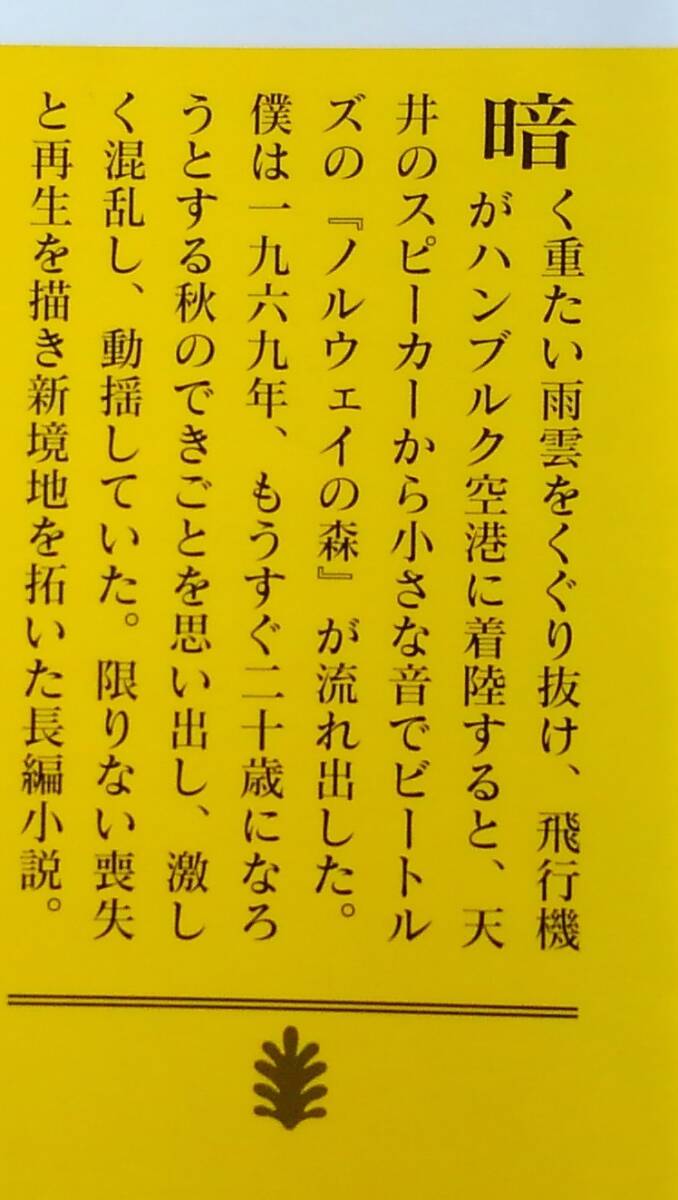 暗く重たい雨雲をくぐり抜け、飛行機
がハンブルク空港に着陸すると、天
井のスピーカーから小さな音でビートル
ズの『ノルウェイの森』が流れ出した。
僕は一九六九年、もうすぐ二十歳になろ
うとする秋のできごとを思い出し、激し
く混乱し、動揺していた。限りない喪失
と再生を描き新境地を拓いた長編小説。